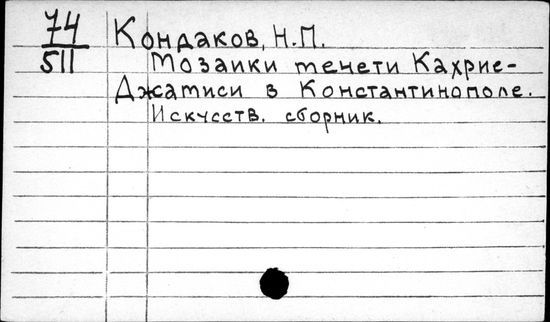 74
511
Кондаков, Н.П.
Мозаики течети Кахрие-
Джатиси в Константинополе.
Искусств. сборник.